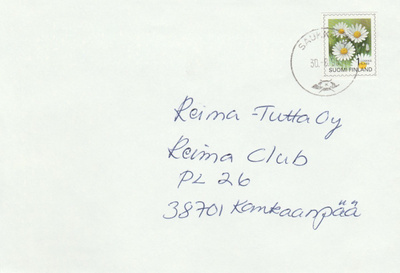 30.
1
SUOMI FINLAND
Reima-Tutta Oy
Reima Club
PL 26
38701 Kankaanpää